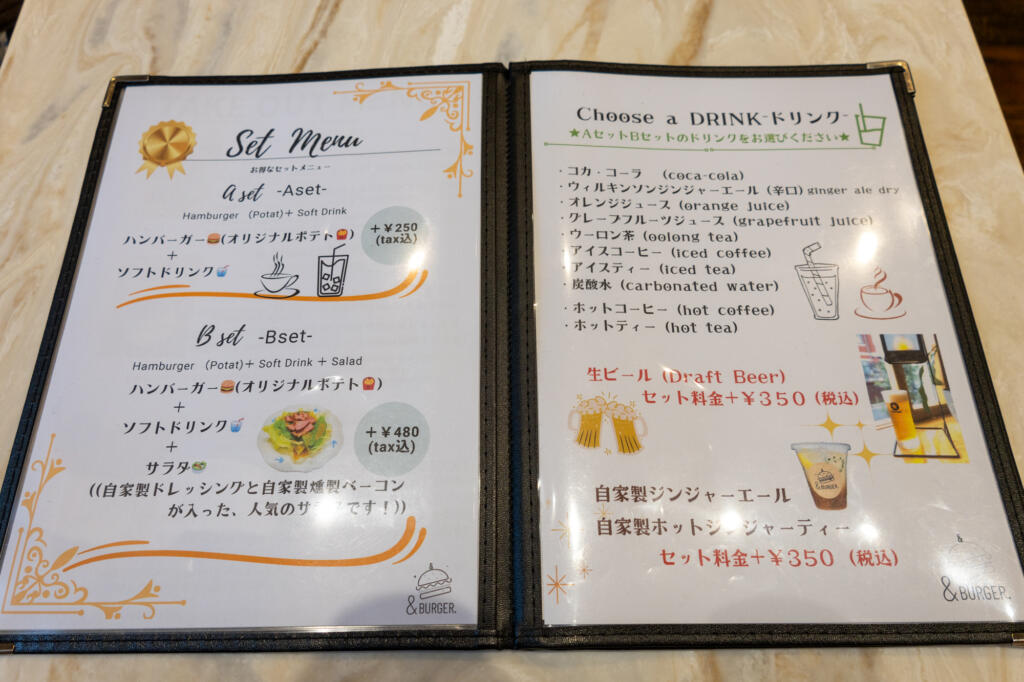 Set Menu
お得なセットメニュー
A set -Aset-
Hamburger （Potat）＋ Soft Drink
ハンバーガー🍔(オリジナルポテト🍟)
＋
ソフトドリンク🥤
＋￥250
(tax込)
B set -Bset-
Hamburger （Potat）＋ Soft Drink ＋ Salad
ハンバーガー🍔(オリジナルポテト🍟)
＋
ソフトドリンク🥤
＋
サラダ🥗
＋￥480
(tax込)
((自家製ドレッシングと自家製燻製ベーコン
が入った、人気のサラダです！))
&BURGER.
Choose a DRINK-ドリンク-
★AセットBセットのドリンクをお選びください★
・コカ・コーラ （coca-cola）
・ウィルキンソンジンジャーエール（辛口）ginger ale dry
・オレンジジュース（orange juice）
・グレープフルーツジュース（grapefruit juice）
・ウーロン茶（oolong tea）
・アイスコーヒー（iced coffee）
・アイスティー（iced tea）
・炭酸水（carbonated water）
・ホットコーヒー（hot coffee）
・ホットティー（hot tea）
生ビール（Draft Beer）
セット料金＋￥350（税込）
&BURGER.
自家製ジンジャーエール
自家製ホットジンジャーティー
セット料金＋￥350（税込）
&
&BURGER.